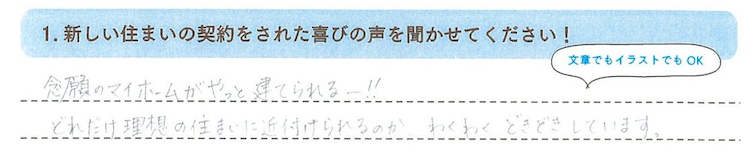 1. 新しい住まいの契約をされた喜びの声を聞かせてください！
文章でもイラストでも OK
念願のマイホームがやっと建てられるー!!
どれだけ理想の住まいに近付けられるのか、わくわく どきどきしています。